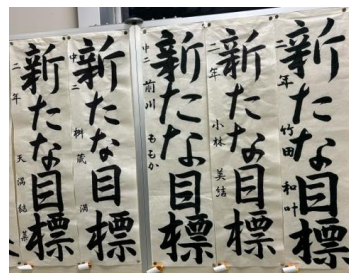 新たな目標
二年 竹田 和叶
新たな目標
二年 小林 美結
新たな目標
中二 前川 ももか
新たな目標
中二 満
新たな目標
二年 天満